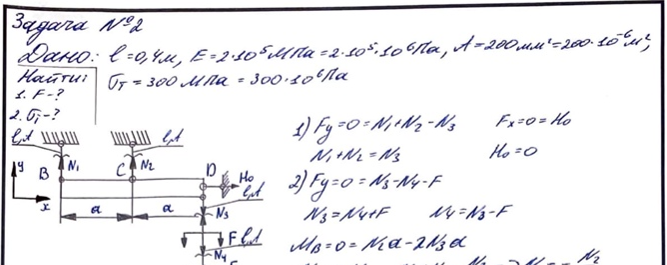 Задача №2
Дано: l=0,4м, E=2·10⁵МПа=2·10⁵·10⁶Па, A=200мм²=200·10⁻⁶м²,
Найти: σт=300МПа=300·10⁶Па
1. F-?
2. σi-?
l,A l,A
B N₁ C N₂ D H₀
y x a a l,A
N₃
F l,A
N₄
1) Fy=0=N₁+N₂-N₃ Fx=0=H₀
N₁+N₂=N₃ H₀=0
2) Fy=0=N₃-N₄-F
N₃=N₄+F N₄=N₃-F
MB=0=N₂a-2N₃a